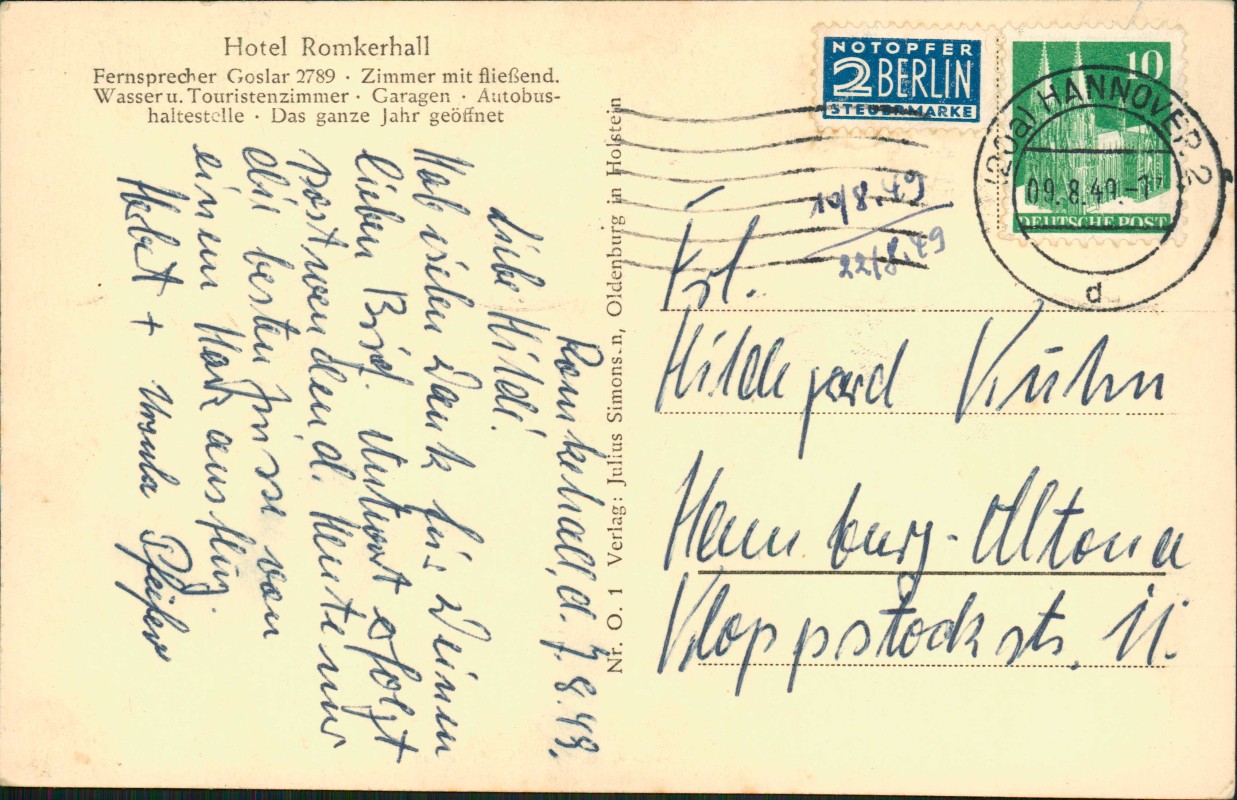 Hotel Romkerhall
Fernsprecher Goslar 2789 · Zimmer mit fließend.
Wasser u. Touristenzimmer · Garagen · Autobus-
haltestelle · Das ganze Jahr geöffnet
Romkehall, d. 7.8.49.
Liebe Hilde!
Hab vielen Dank für Deinen
lieben Brief. Antwort erfolgt
postwendend. Heute nur
die besten Grüsse von
einem Harzausflug.
Herbert + Ursula Pfeifer
Nr. O. 1 Verlag: Julius Simonsen, Oldenburg in Holstein
NOTOPFER
2 BERLIN
STEUERMARKE
10
DEUTSCHE POST
(20a) HANNOVER 2
09.8.49.
d
19/8.49
22/8.49
Frl.
Hildegard Kuhn
Hamburg-Altona
Kloppstockstr. 11.